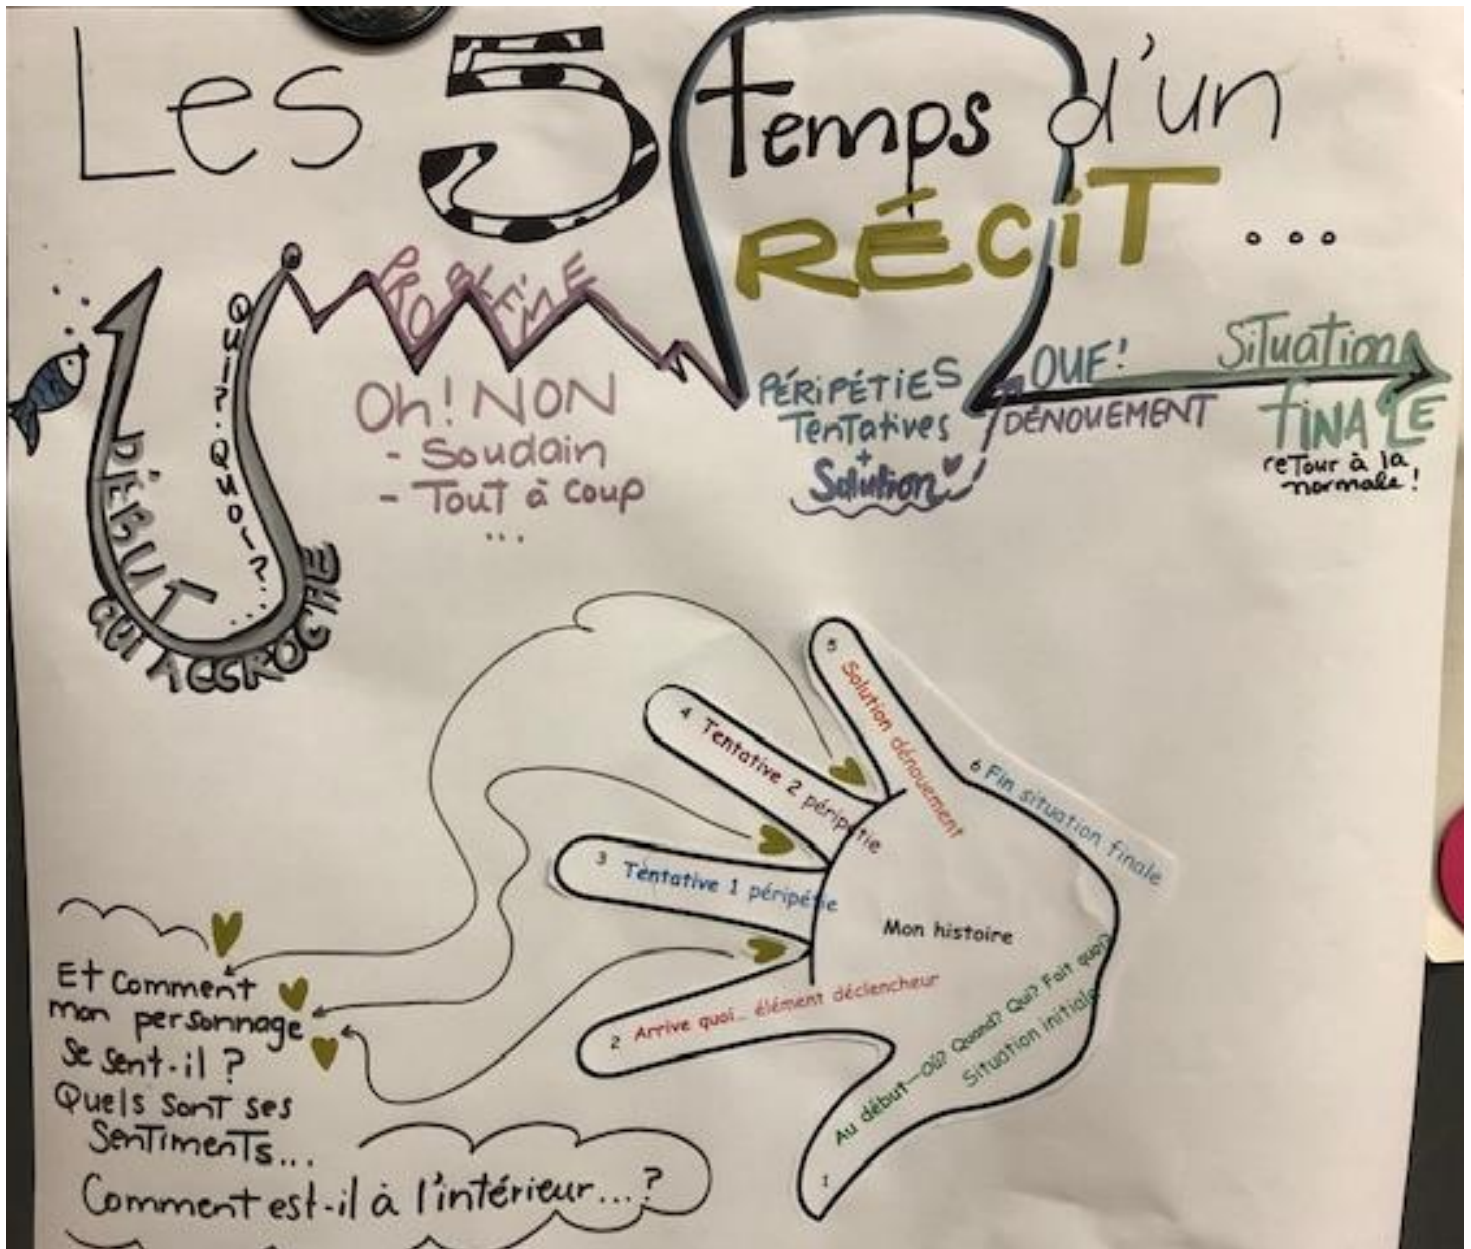 Les 5 temps d'un
RÉCiT ...
DÉBUT
QUI ACCROCHE
QUI? QUOI? ...
PROBLÈME
Oh! NON
- Soudain
- Tout à coup
...
PÉRIPÉTIES
Tentatives
+
Solution
OUF!
DÉNOUEMENT
Situation
finale
retour à la
normale!
5 Solution dénouement
4 Tentative 2 péripétie
3 Tentative 1 péripétie
2 Arrive quoi... élément déclencheur
1 Au début—Où? Quand? Qui? Fait quoi?
Situation initiale
6 Fin situation finale
Mon histoire
Et comment
mon personnage
se sent-il ?
Quels sont ses
sentiments...
Comment est-il à l'intérieur...?